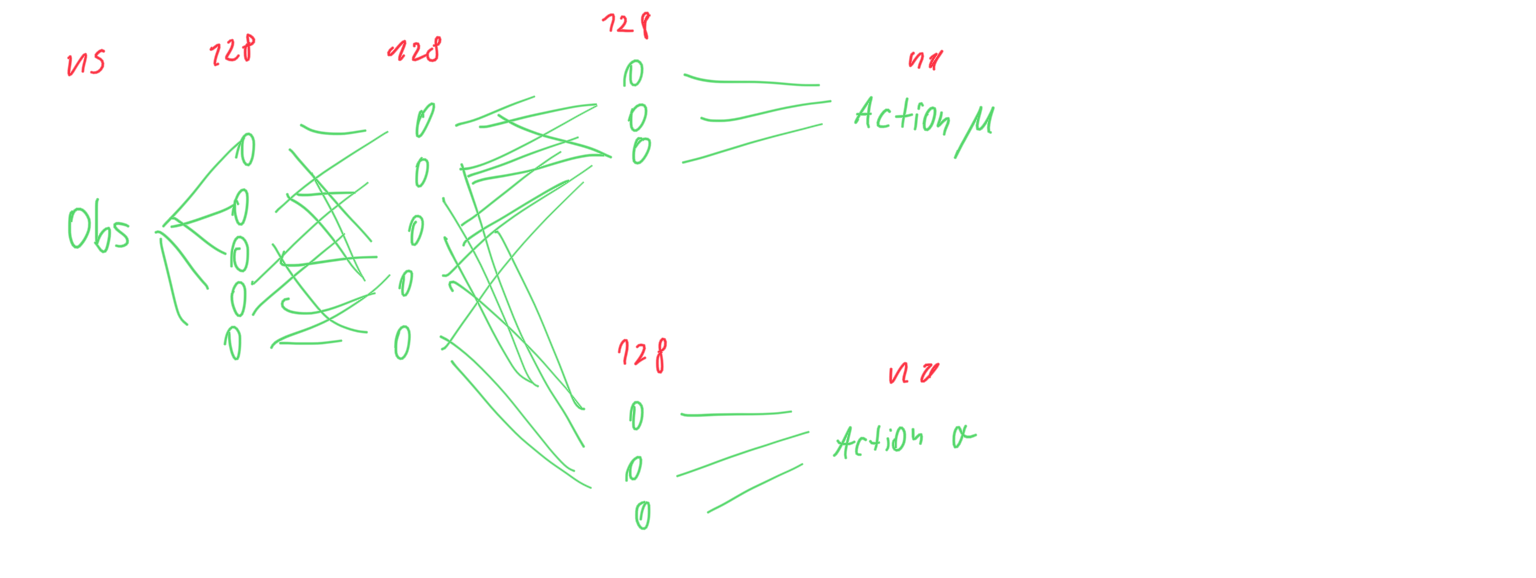 ns
128
128
128
na
Action μ
Obs
128
na
Action σ